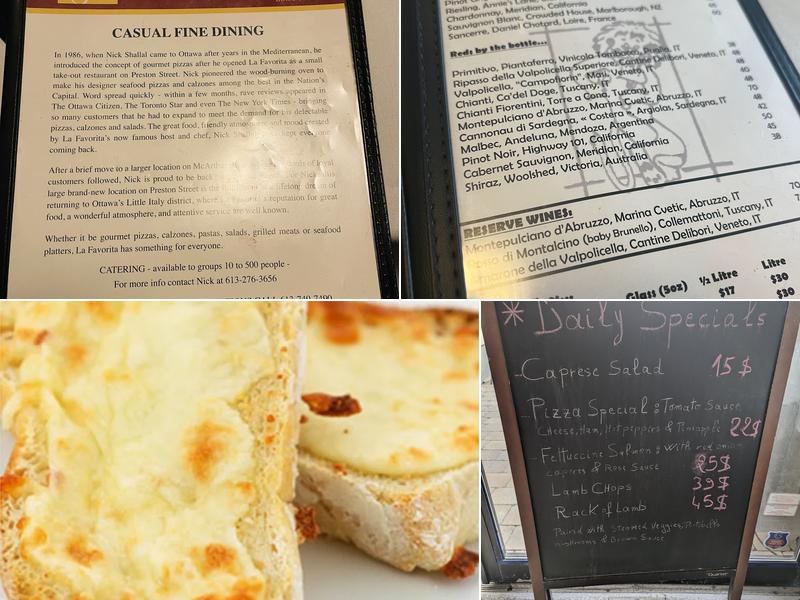 CASUAL FINE DINING
In 1986, when Nick Shallal came to Ottawa after years in the Mediterranean, he
introduced the concept of gourmet pizzas after he opened La Favorita as a small
take-out restaurant on Preston Street. Nick pioneered the wood-burning oven to
make his designer seafood pizzas and calzones among the best in the Nation's
Capital. Word spread quickly - within a few months, rave reviews appeared in
The Ottawa Citizen, The Toronto Star and even The New York Times - bringing
so many customers that he had to expand to meet the demand for his delectable
pizzas, calzones and salads. The great food, friendly atmosphere and mood created
by La Favorita's now famous host and chef, Nick kept everyone
coming back.
After a brief move to a larger location on McArthur of loyal
customers followed, Nick is proud to be back
large brand-new location on Preston Street is the lifelong dream of
returning to Ottawa's Little Italy district, where La Favorita's reputation for great
food, a wonderful atmosphere, and attentive service are well known.
Whether it be gourmet pizzas, calzones, pastas, salads, grilled meats or seafood
platters, La Favorita has something for everyone.
CATERING - available to groups 10 to 500 people -
For more info contact Nick at 613-276-3656
Riesling, Annie's Lane,
Chardonnay, Meridian, California
Sauvignon Blanc, Crowded House, Marlborough, NZ
Sancerre, Daniel Chotard, Loire, France
Reds by the bottle...
Primitivo, Piantaferro, Vinicola Tombacco, Puglia, IT 38
Ripasso della Valpolicella Superiore, Cantine Delibori, Veneto, IT 48
Valpolicella, "Campofiorin", Masi, Veneto, IT
Chianti, Ca'del Doge, Tuscany, IT
Chianti Fiorentini, Torre a Cona, Tuscany, IT
Montepulciano d'Abruzzo, Marina Cvetic, Abruzzo, IT 70
Cannonau di Sardegna, « Costera », Argiolas, Sardegna, IT 48
Malbec, Andeluna, Mendoza, Argentina 42
Pinot Noir, Highway 101, California 50
Cabernet Sauvignon, Meridian, California 45
Shiraz, Woolshed, Victoria, Australia 38
RESERVE WINES:
Montepulciano d'Abruzzo, Marina Cvetic, Abruzzo, IT 70
di Montalcino (baby Brunello), Collemattoni, Tuscany, IT
Amarone della Valpolicella, Cantine Delibori, Veneto, IT
Glass (5oz) ½ Litre Litre
$17 $30
$30
* Daily Specials
- Caprese Salad 15$
- Pizza Special: Tomato Sauce
Cheese, Ham, Hot peppers & Pineapple 22$
- Fettuccine Salmon: With red onion
capers & Rose Sauce 25$
Lamb Chops 39$
Rack of Lamb 45$
Paired with Steamed Veggies, Portobello
mushrooms & Brown Sauce